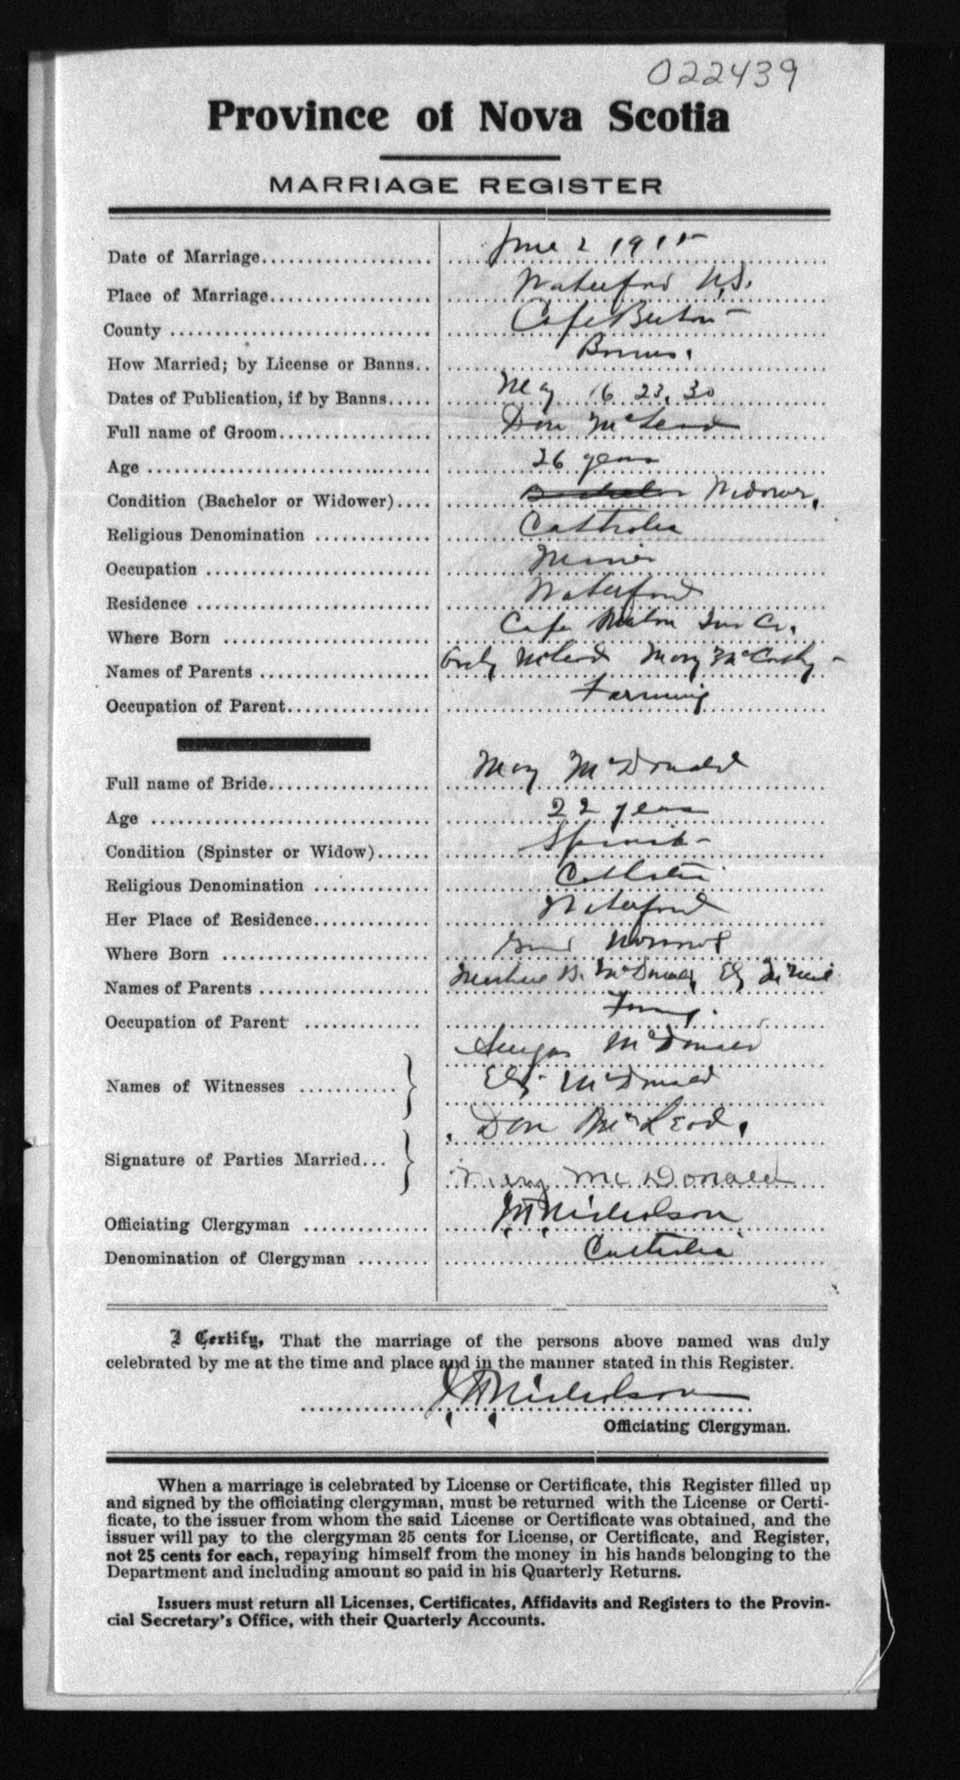 022439
Province of Nova Scotia
MARRIAGE REGISTER
Date of Marriage.................... June 2 1915
Place of Marriage................. Waterford N.S.
County ............................ Cape Breton
How Married; by License or Banns.. Banns.
Dates of Publication, if by Banns..... May 16 23, 30
Full name of Groom.................. Dan McLeod
Age ................................ 26 years
Condition (Bachelor or Widower).... Bachelor Widower.
Religious Denomination ............. Catholic
Occupation .......................... Miner
Residence ........................... Waterford
Where Born ........................ Cape Breton Inv Co.
Names of Parents .................... McLeod Mary McCosky
Occupation of Parent................. Farming
Full name of Bride................... Mary McDonald
Age ................................. 22 years
Condition (Spinster or Widow)...... Spinster
Religious Denomination ............. Catholic
Her Place of Residence.............. Waterford
Where Born ........................
Names of Parents .................... B. McDonald, Elz McNeil
Occupation of Parent .............. Farming.
Names of Witnesses ........... Angus McDonald
Elz McDonald
Signature of Parties Married... Dan McLeod.
Mary McDonald
Officiating Clergyman .............. Nicholson
Denomination of Clergyman ........ Catholic
I Certify, That the marriage of the persons above named was duly
celebrated by me at the time and place and in the manner stated in this Register.
Nicholson
Officiating Clergyman.
When a marriage is celebrated by License or Certificate, this Register filled up
and signed by the officiating clergyman, must be returned with the License or Certi-
ficate, to the issuer from whom the said License or Certificate was obtained, and the
issuer will pay to the clergyman 25 cents for License, or Certificate, and Register,
not 25 cents for each, repaying himself from the money in his hands belonging to the
Department and including amount so paid in his Quarterly Returns.
Issuers must return all Licenses, Certificates, Affidavits and Registers to the Provin-
cial Secretary's Office, with their Quarterly Accounts.